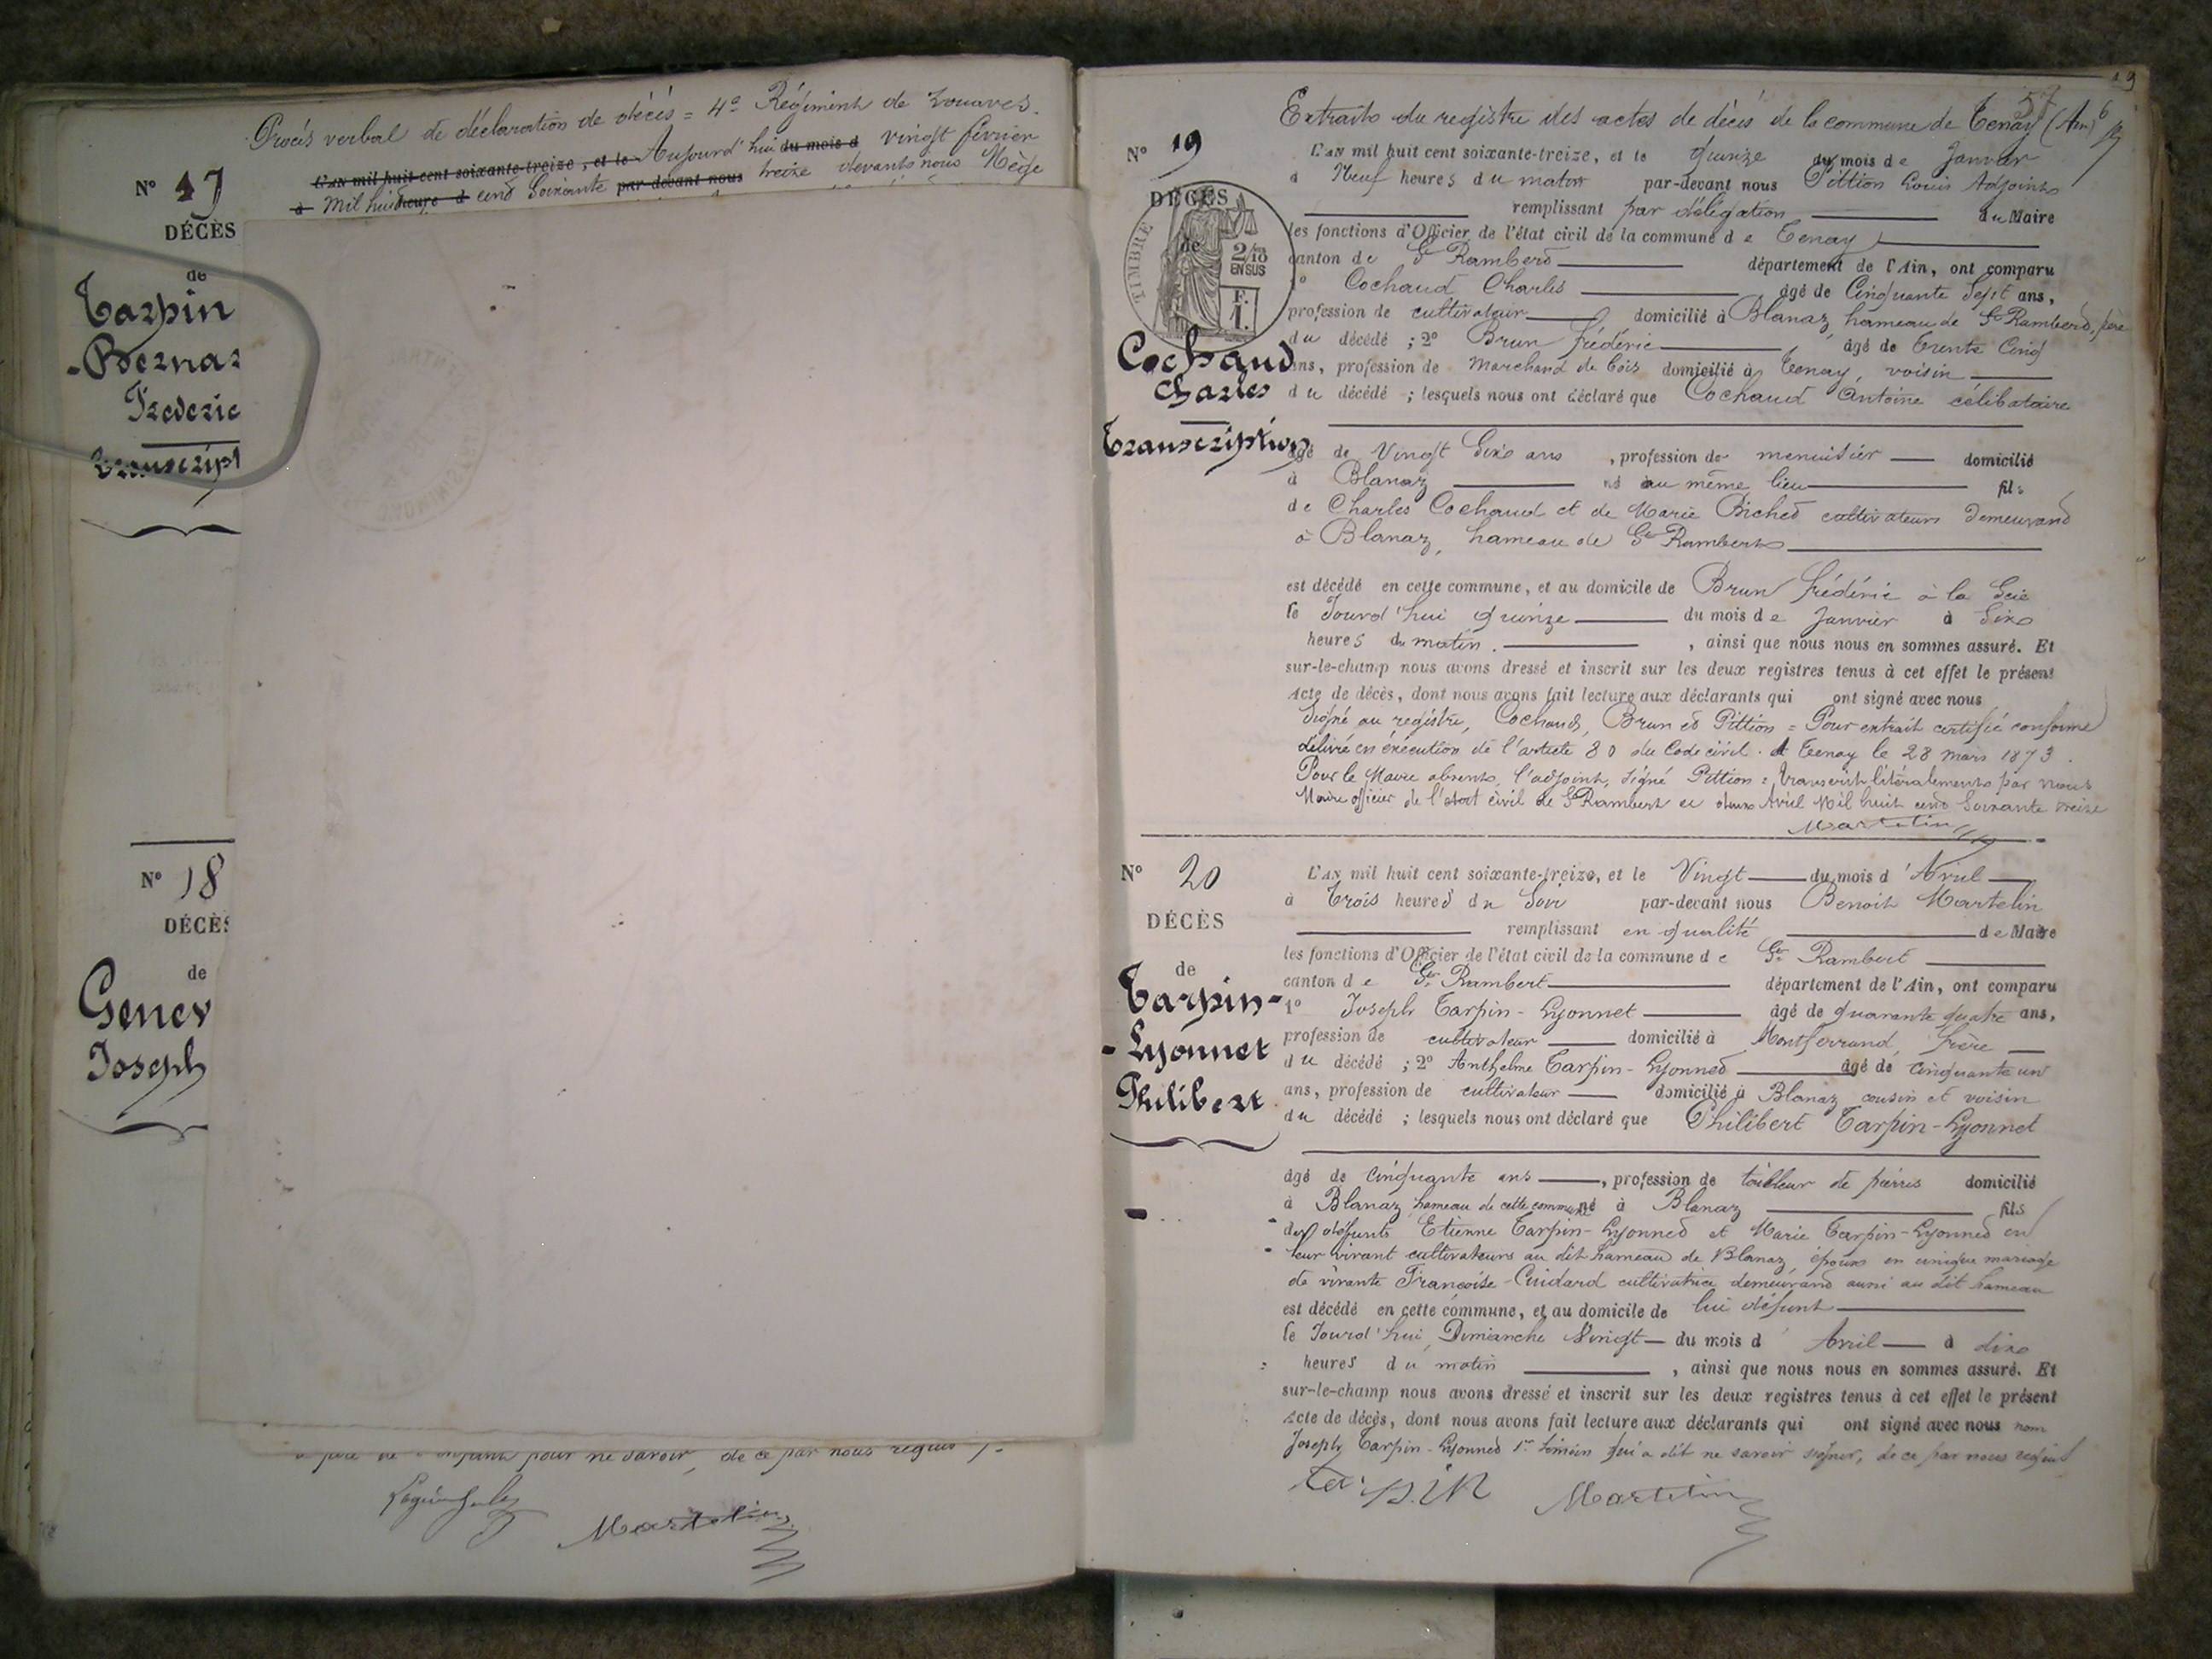 Procès verbal de déclaration de décès = 4e Régiment de Zouaves.
L'AN mil huit cent soixante-treize, et le Aujourd'hui du mois d vingt février
à Mil huit heure d cent soixante par-devant nous treize devant nous Mège
N° 17
DÉCÈS
de
Tarpin
-Bernar
Frederic
transcript
N° 18
DÉCÈS
de
Genev
Joseph
pour ne savoir, de ce par nous requis
Martelin
19
57
Extrait du registre des actes de décès de la commune de Tenay (Ain)
N° 19
DÉCÈS
de
TIMBRE
2/10
EN SUS
F.
1.
Cochaud
Charles
Transcription
L'AN mil huit cent soixante-treize, et le quinze du mois de Janvier
à Neuf heures du matin par-devant nous Pittion Louis Adjoint
remplissant par délégation du Maire
les fonctions d'Officier de l'état civil de la commune de Tenay
canton de St Rambert département de l'Ain, ont comparu
1° Cochaud Charles âgé de Cinquante Sept ans,
profession de cultivateur domicilié à Blanaz, hameau de St Rambert, père
du décédé ; 2° Brun frédéric âgé de trente cinq
ans, profession de Marchand de bois domicilié à Tenay, voisin
du décédé ; lesquels nous ont déclaré que Cochaud Antoine célibataire
âgé de Vingt Six ans , profession de menuisier domicilié
à Blanaz né au même lieu fils
de Charles Cochaud et de Marie Bichet cultivateurs demeurant
à Blanaz, hameau de St Rambert
est décédé en cette commune, et au domicile de Brun frédéric à la Scie
le Jourd'hui quinze du mois de Janvier à Six
heures du matin. , ainsi que nous nous en sommes assuré. Et
sur-le-champ nous avons dressé et inscrit sur les deux registres tenus à cet effet le présent
Acte de décès, dont nous avons fait lecture aux déclarants qui ont signé avec nous
Signé au registre, Cochaud, Brun et Pittion = Pour extrait certifié conforme
délivré en exécution de l'article 80 du Code civil. A Tenay le 28 mars 1873.
Pour le Maire absent, l'adjoint, signé Pittion = transcrit littéralement par nous
Maire officier de l'état civil de St Rambert ce deux Avril Mil huit cent soixante treize
Martelin
N° 20
DÉCÈS
de
Tarpin-
-Lyonnet
Philibert
L'AN mil huit cent soixante-treize, et le Vingt du mois d'Avril
à Trois heures du Soir par-devant nous Benoit Martelin
remplissant en qualité de Maire
les fonctions d'Officier de l'état civil de la commune de St Rambert
canton de St Rambert département de l'Ain, ont comparu
1° Joseph Tarpin-Lyonnet âgé de quarante quatre ans,
profession de cultivateur domicilié à Montferrand, frère
du décédé ; 2° Anthelme Tarpin-Lyonnet âgé de cinquante un
ans, profession de cultivateur domicilié à Blanaz cousin et voisin
du décédé ; lesquels nous ont déclaré que Philibert Tarpin-Lyonnet
âgé de cinquante ans , profession de tailleur de pierres domicilié
à Blanaz hameau de cette commune né à Blanaz fils
des défunts Etienne Tarpin-Lyonnet et Marie Tarpin-Lyonnet en
leur vivant cultivateurs au dit hameau de Blanaz, époux en unique mariage
de vivante Françoise Cuidard cultivatrice demeurant aussi au dit hameau
est décédé en cette commune, et au domicile de lui défunt
le Jourd'hui, Dimanche Vingt du mois d'Avril à dix
heures du matin , ainsi que nous nous en sommes assuré. Et
sur-le-champ nous avons dressé et inscrit sur les deux registres tenus à cet effet le présent
Acte de décès, dont nous avons fait lecture aux déclarants qui ont signé avec nous non
Joseph Tarpin-Lyonnet 1er témoin qui a dit ne savoir signer, de ce par nous requis
tarpin Martelin